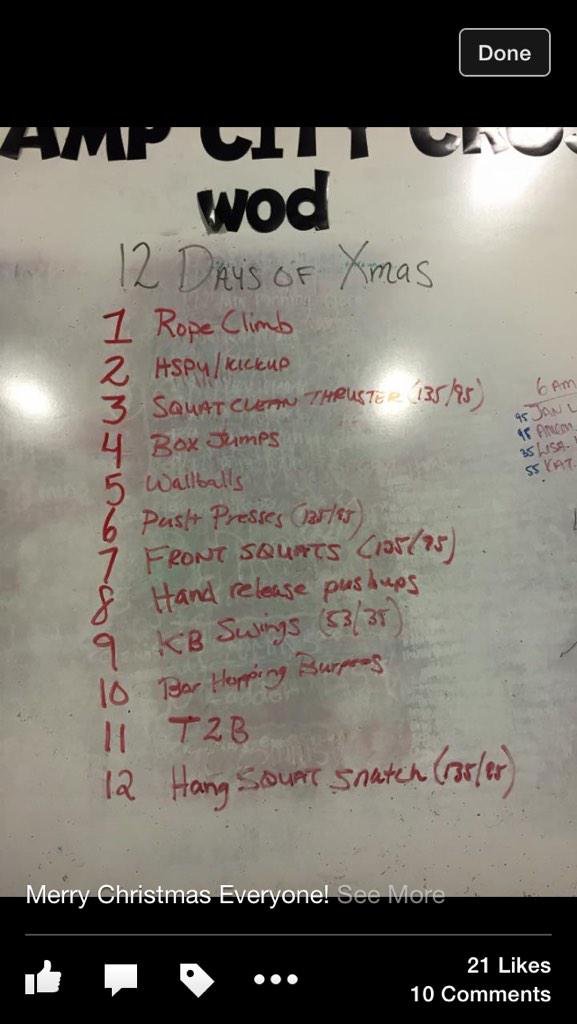 Done
AMP CITY CROS
WOD
12 DAYS OF Xmas
1 Rope Climb
2 HSPU/KICKUP
3 SQUAT CLEAN THRUSTER (135/95)
4 Box Jumps
5 Wallballs
6 Push Presses (135/95)
7 FRONT SQUATS (135/95)
8 Hand release pushups
9 KB Swings (53/35)
10 Bar Hopping Burpees
11 T2B
12 Hang SQUAT Snatch (135/95)
6 AM
95 JAN L
35 LISA
55 KAT
Merry Christmas Everyone! See More
21 Likes
10 Comments